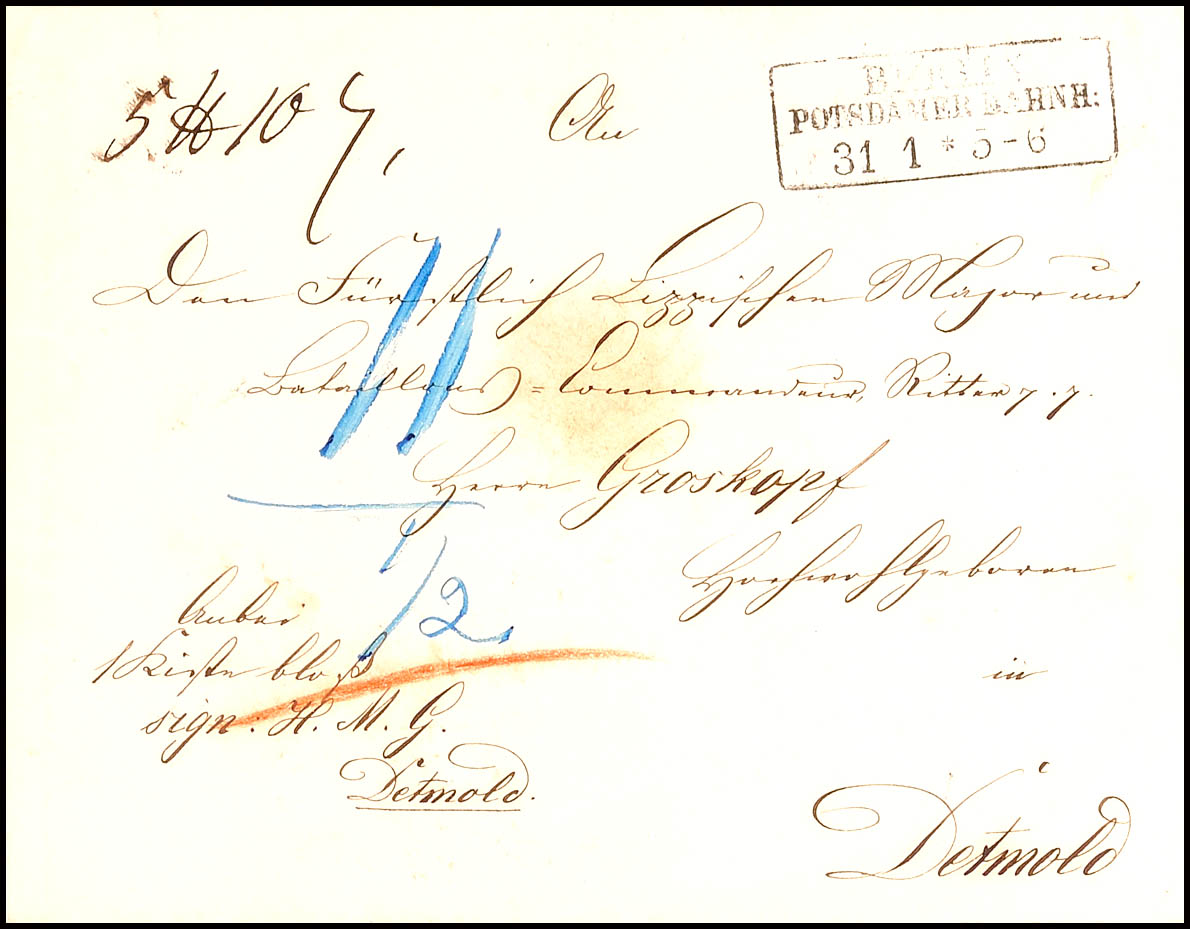 5 ℔ 10
An
BERLIN
POTSDAMER BAHNH:
31 1 * 5-6
Den Fürstlich Lippischen Major und
Bataillons=Commandeur, Ritter p. p.
Herrn Groskopf
Hochwohlgeboren
11
1/2
Anbei
1 Kiste bloß
sign: H. M. G.
Detmold.
in
Detmold